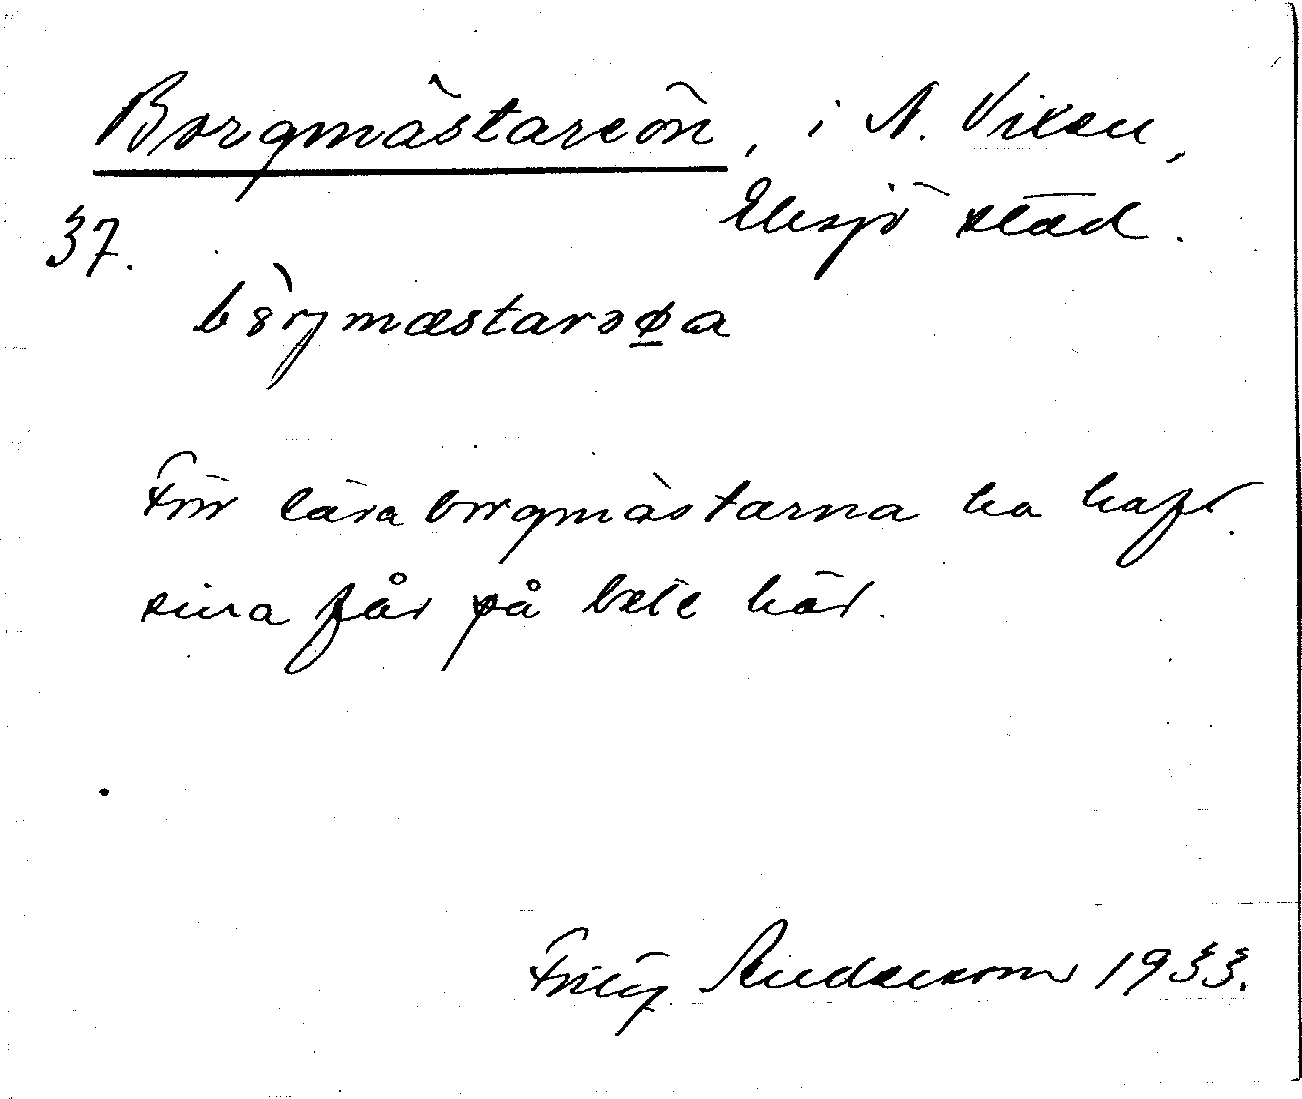 Borgmästareön, i N. Vixen,
Eksjö stad.
37.
bȯrjmæstarəøa
Förr lära borgmästarna ha haft
sina får på bete här.
Fritz Anderson 1933.